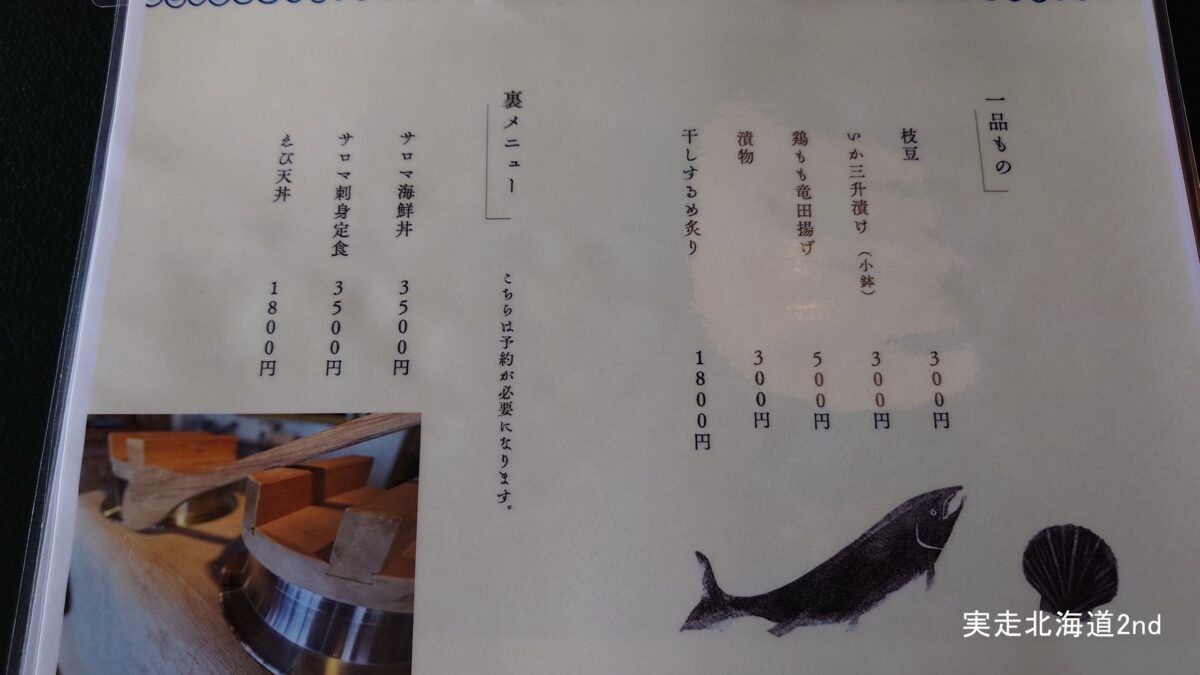 一品もの
枝豆 300円
いか三升漬け（小鉢） 300円
鶏もも竜田揚げ 500円
漬物 300円
干しするめ炙り 1800円
裏メニュー こちらは予約が必要になります。
サロマ海鮮丼 3500円
サロマ刺身定食 3500円
えび天丼 1800円
実走北海道2nd